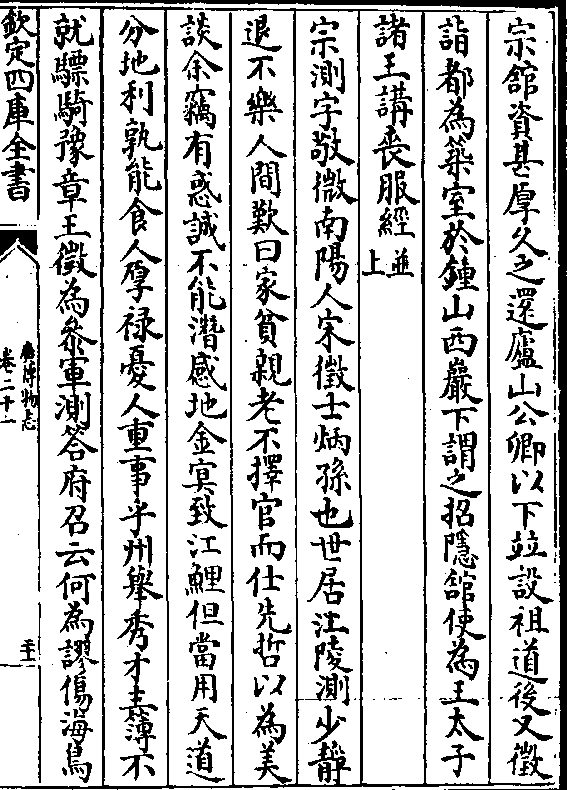 宗舘資甚厚久之還廬山公卿以下竝設祖道後又徵
詣都為築室於鍾山西巖下謂之招隱舘使為王太子
諸王講喪服經並上
宗測字敬微南陽人宋徵士炳孫也世居江陵測少靜
退不樂人間歎曰家貧親老不擇官而仕先哲以為美
談余竊有惑誠不能潛感地金冥致江鯉但當用天道
分地利孰能食人厚禄憂人重事乎州舉秀才主簿不
就驃騎豫章王徵為叅軍測答府召云何為謬傷海鳥
欽定四庫全書
廣博物志
卷二十一